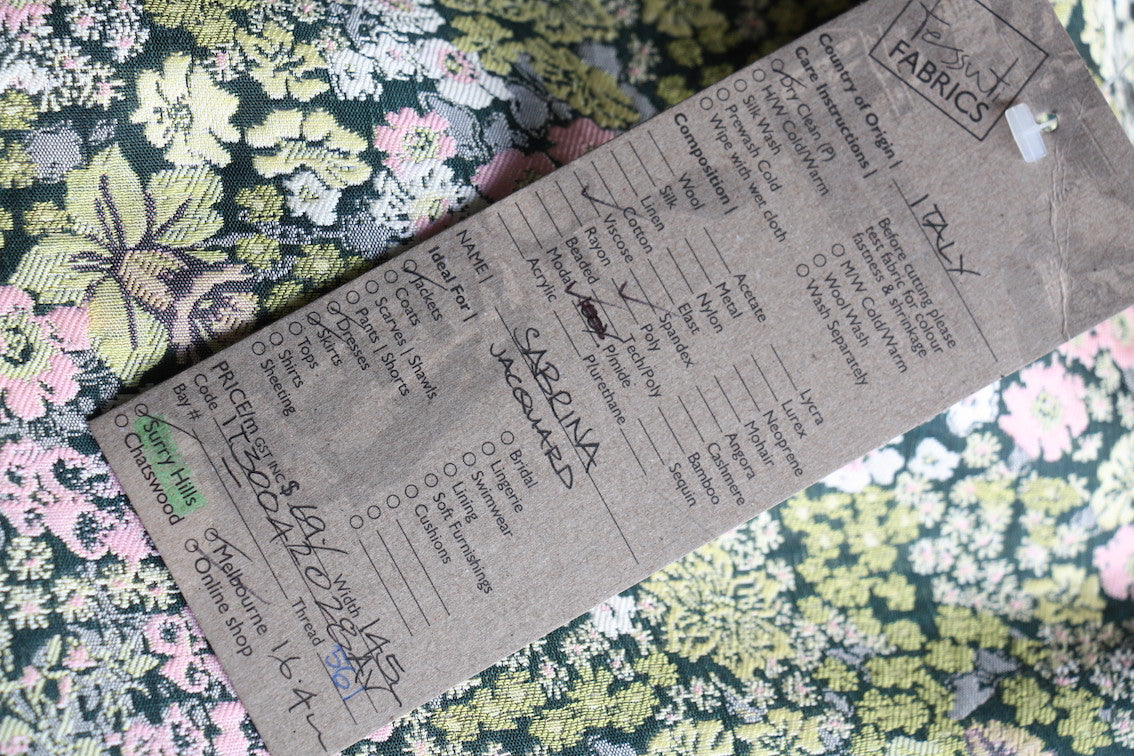 Tessuti
FABRICS
Country of Origin | ITALY
Care Instructions |
Dry Clean (P)
H/W Cold/Warm
Silk Wash
Prewash Cold
Wipe with wet cloth
Before cutting please
test fabric for colour
fastness & shrinkage
M/W Cold/Warm
Wool Wash
Wash Separately
Composition |
Wool
Silk
Linen
Cotton
Viscose
Rayon
Beaded
Modal
Acrylic
Acetate
Metal
Nylon
Elast
Spandex
Poly
Tech/Poly
P/mide
Plurethane
Lycra
Lurex
Neoprene
Mohair
Angora
Cashmere
Bamboo
Sequin
NAME | SABRINA
JACQUARD
Ideal For |
Jackets
Coats
Scarves | Shawls
Pants | Shorts
Dresses
Skirts
Tops
Shirts
Sheeting
Bridal
Lingerie
Swimwear
Lining
Soft Furnishings
Cushions
PRICE/m GST INC $ 69/ Width 145
Code Thread
Bay #
Surry Hills
Chatswood
Melbourne
Online shop